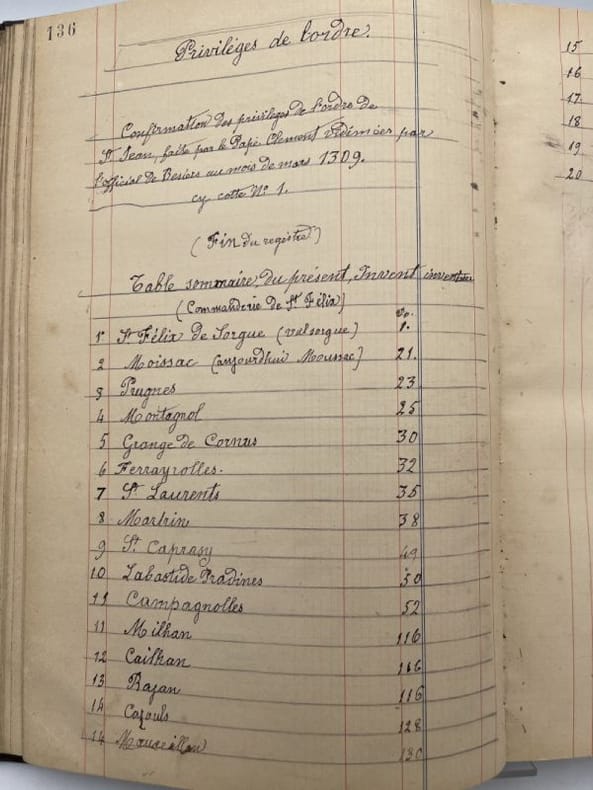 136
Privilèges de l'ordre.
Confirmation des privilèges de l'ordre de
St Jean, faite par le Pape Clement vidimées par
l'official De Besiers au mois de mars 1309.
cy cotte N° 1.
(Fin du registre)
Table sommaire, du présent, Invent inventaire
(Commanderie de St Félix)
1 St Félix de Sorgue (valsorgue) 1.
2 Moissac (aujourdhui Moussac) 21.
3 Prugnes 23
4 Montagnol 25
5 Grange de Cornus 30
6 Ferrayrolles. 32
7 St Laurents 35
8 Martrin 38
9 St Caprasy 49
10 Labastide Pradines 50
11 Campagnolles 52
11 Milhan 116
12 Cailhan 116
13 Bajan 116
14 Cazouls 128
14 130
15
16
17
18
19
20